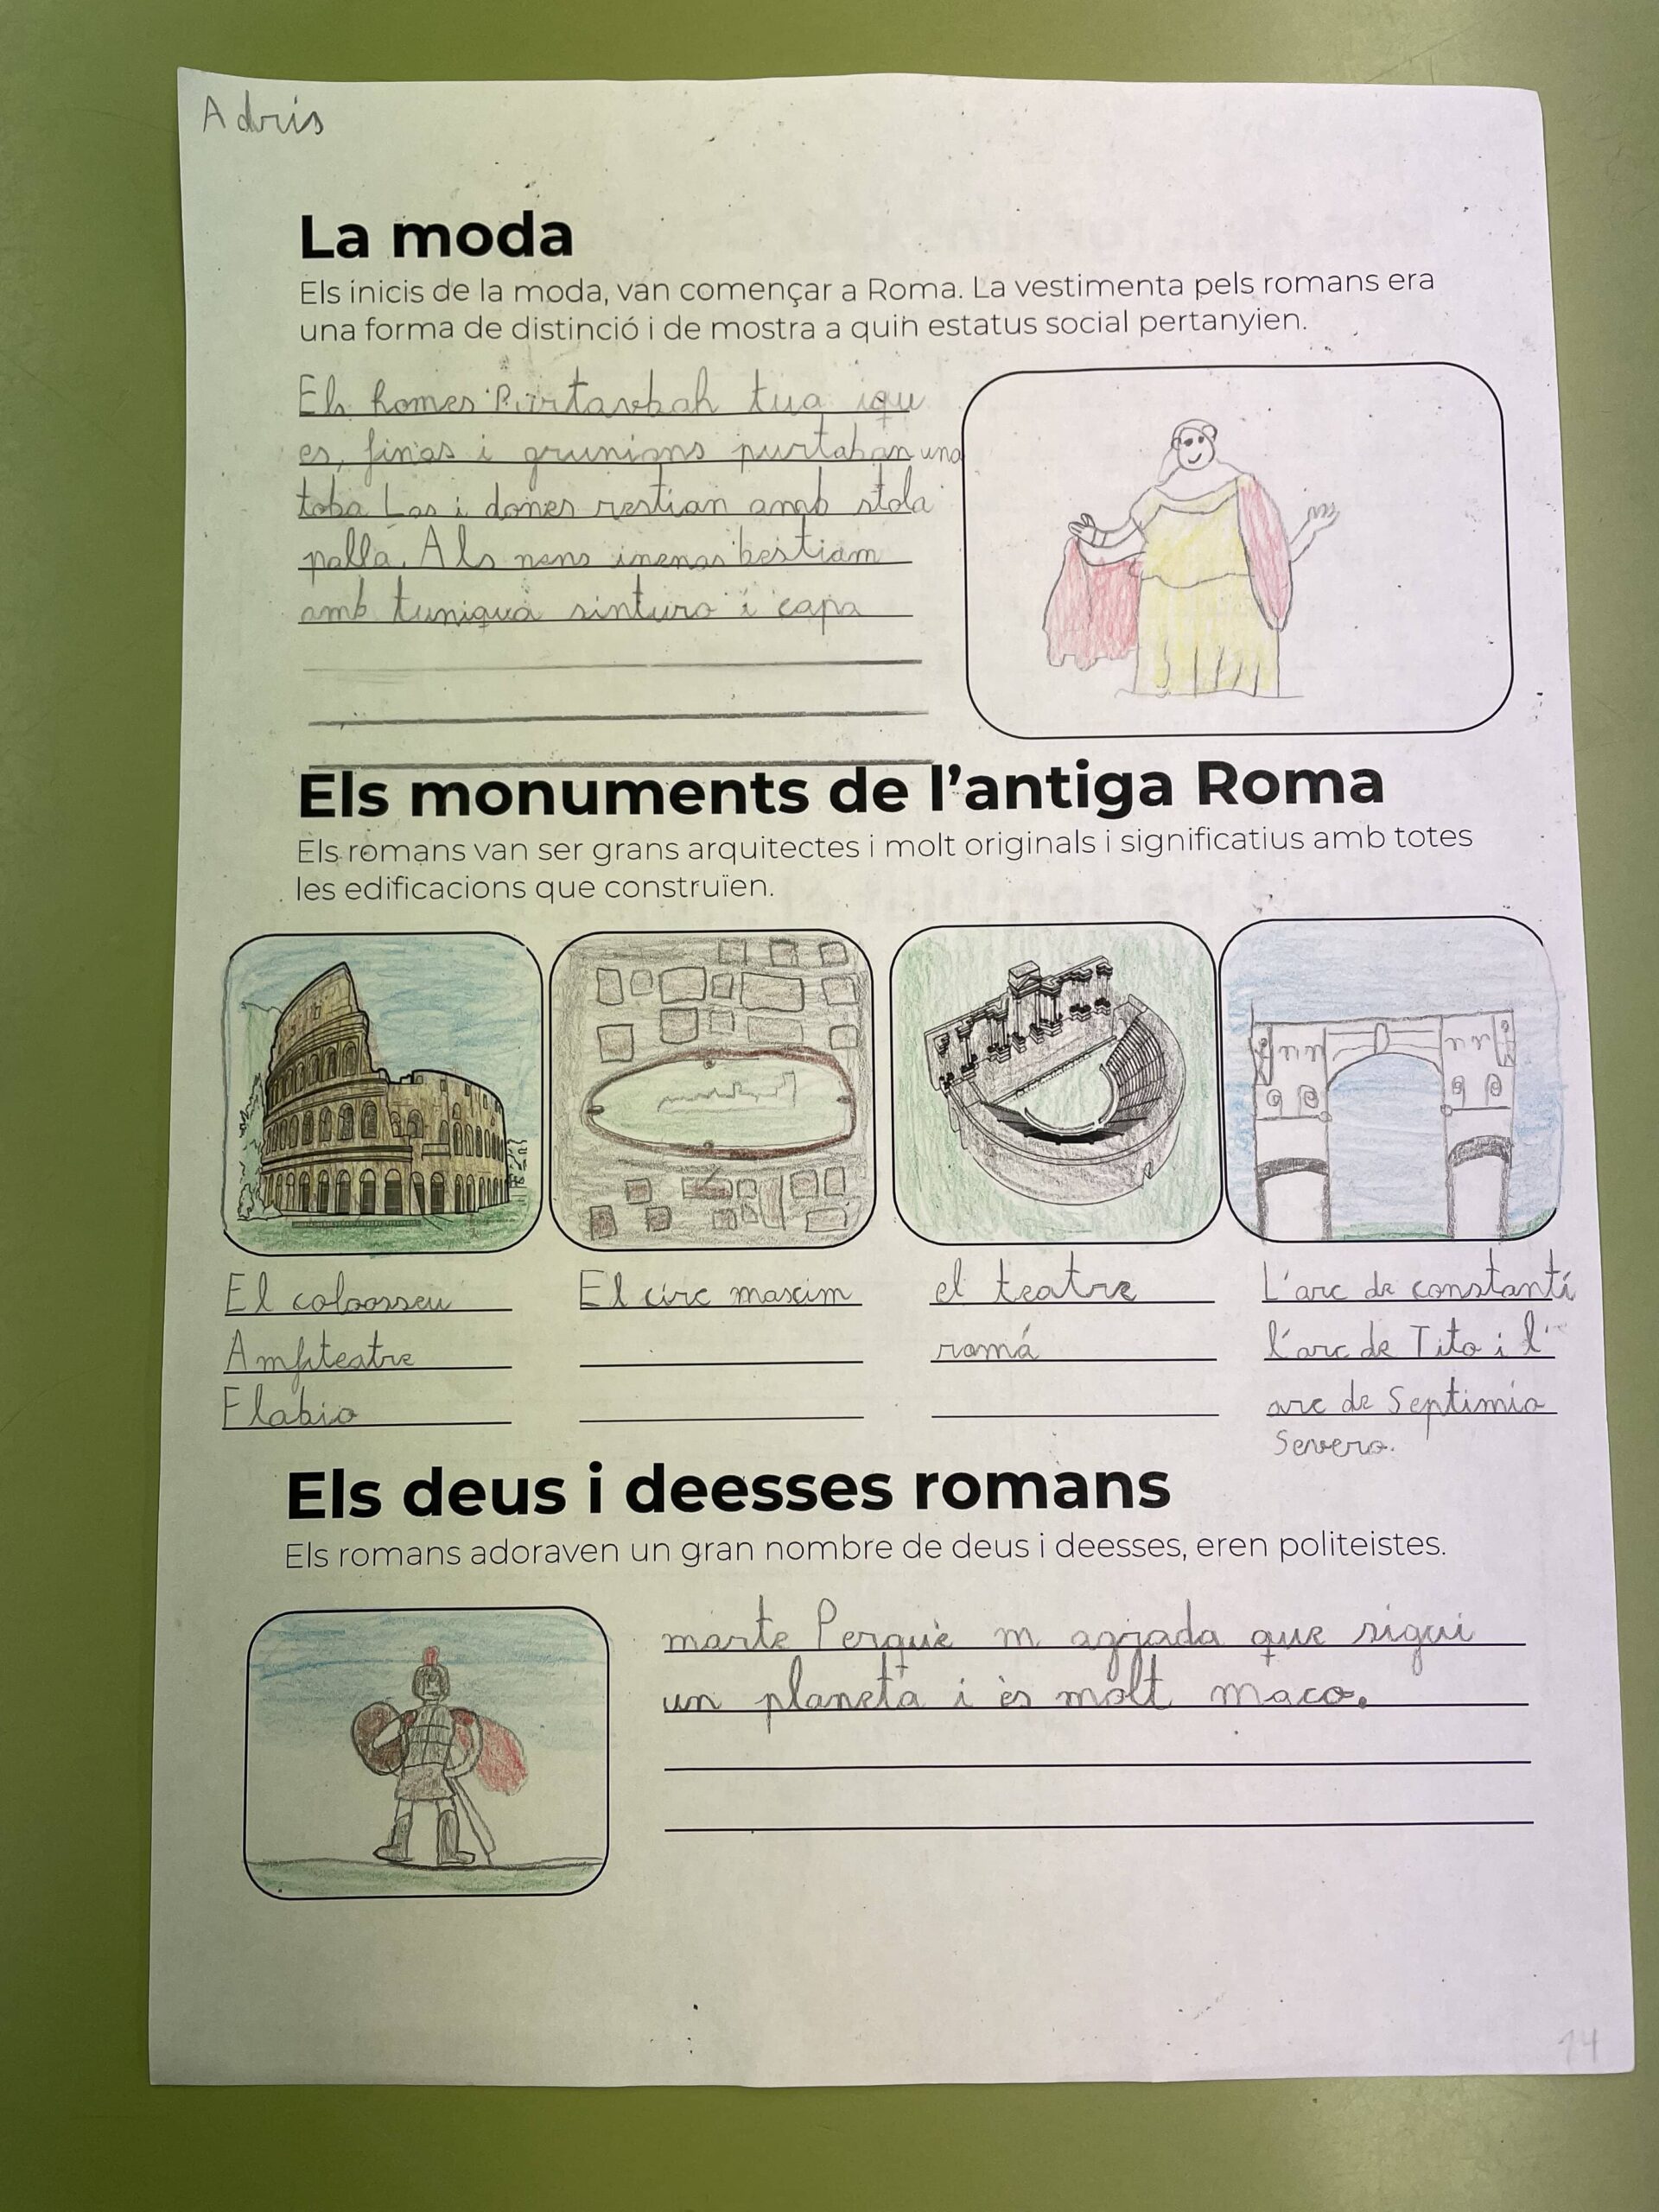 Adris
La moda
Els inicis de la moda, van començar a Roma. La vestimenta pels romans era
una forma de distinció i de mostra a quin estatus social pertanyien.
Els homes Purtavebah tua iqu
es, finas i grunions purtaban una
toba Las i dones restian amb stola
palla. Als nens inenas bestiam
amb tuniqua sinturo i capa
Els monuments de l'antiga Roma
Els romans van ser grans arquitectes i molt originals i significatius amb totes
les edificacions que construïen.
El coloosseu
Amfiteatre
Flabio
El circ maxim
el teatre
romá
L'arc de constantí
l'arc de Tito i l'
arc de Septimio
Severo.
Els deus i deesses romans
Els romans adoraven un gran nombre de deus i deesses, eren politeistes.
marte Perquè m agrada que sigui
un planeta i ès molt maco.
14